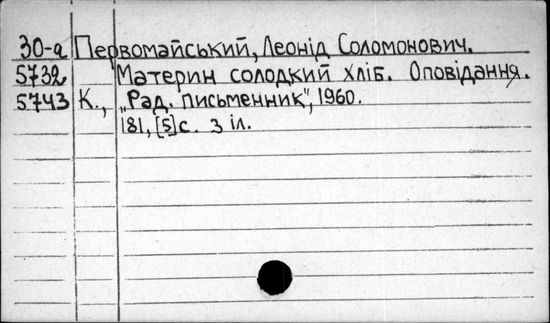 30-а Первомайський, Леонід Соломонович.
5732 Материн солодкий хліб. Оповідання.
5743 К., „Рад. письменник", 1960.
181, [5] с. з іл.